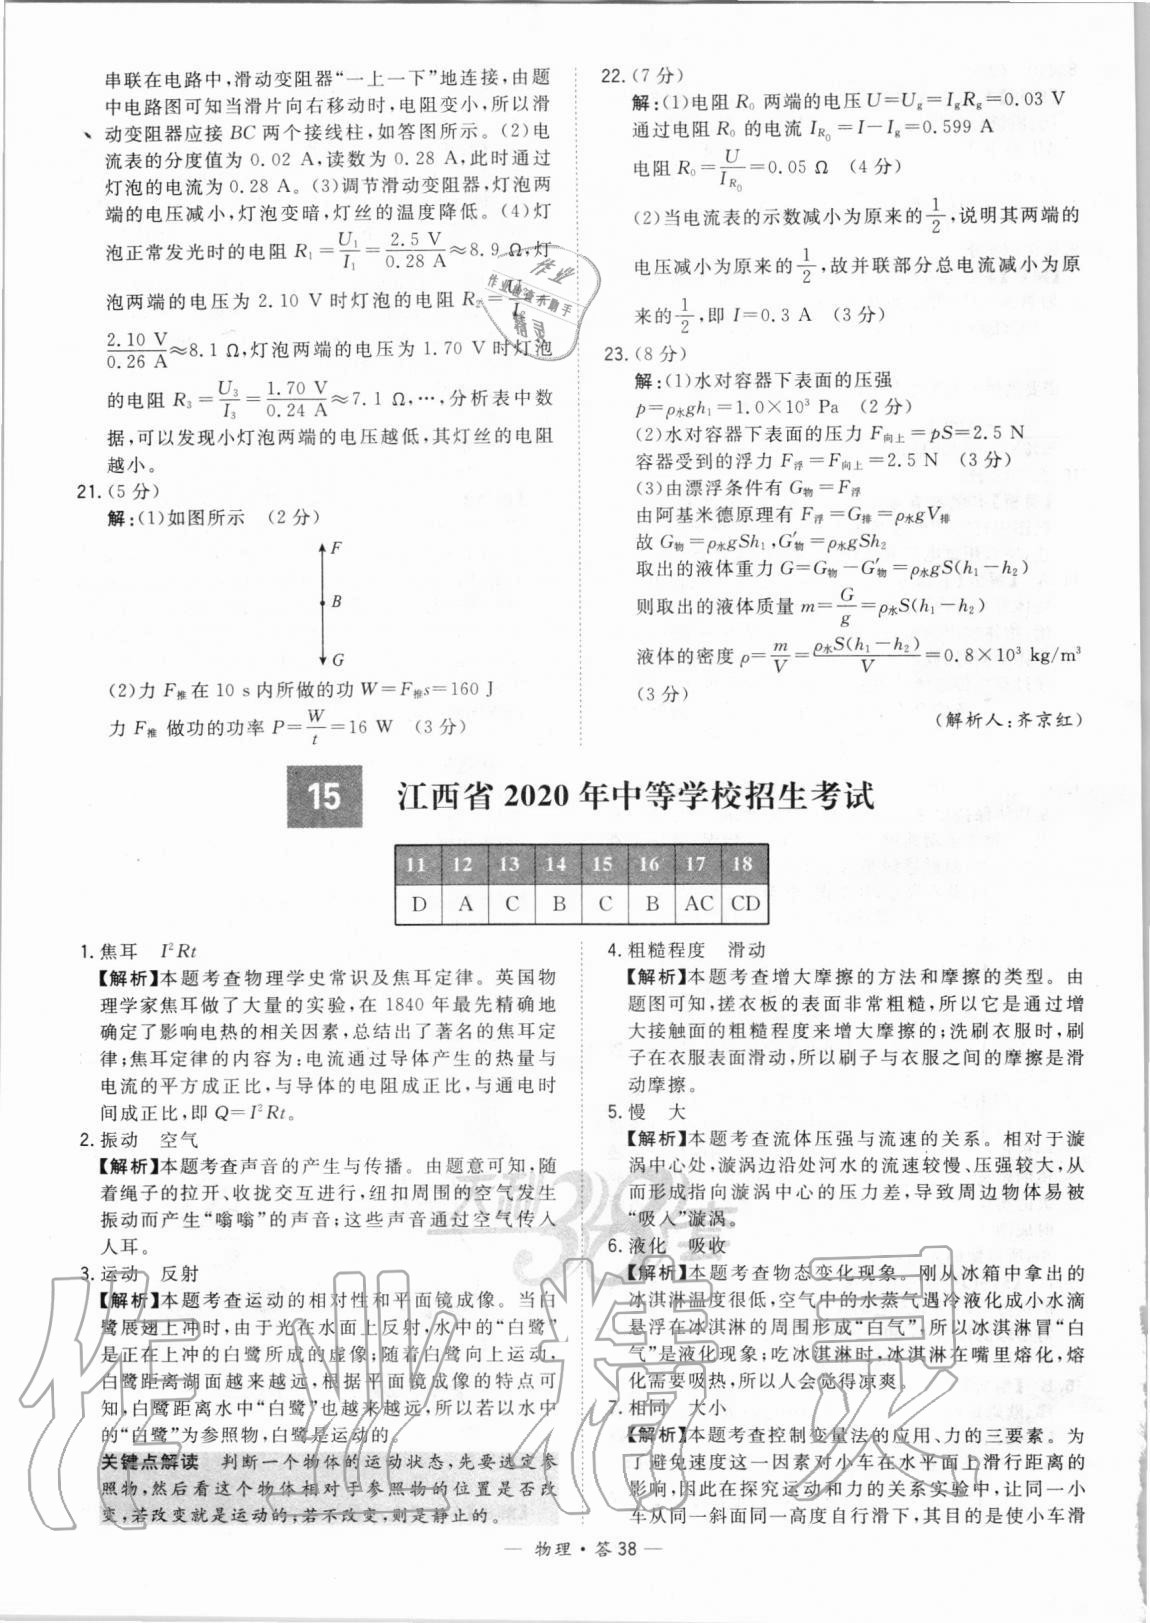 串联在电路中,滑动变阻器“一上一下”地连接,由题
中电路图可知当滑片向右移动时,电阻变小,所以滑
动变阻器应接 BC 两个接线柱,如答图所示。(2)电
流表的分度值为 0.02 A,读数为 0.28 A,此时通过
灯泡的电流为 0.28 A。(3)调节滑动变阻器,灯泡两
端的电压减小,灯泡变暗,灯丝的温度降低。(4)灯
泡正常发光时的电阻 R₁=U₁/I₁=2.5 V/0.28 A≈8.9 Ω,灯
泡两端的电压为 2.10 V 时灯泡的电阻 R₂=U₂/I₂=
2.10 V/0.26 A≈8.1 Ω,灯泡两端的电压为 1.70 V 时灯泡
的电阻 R₃=U₃/I₃=1.70 V/0.24 A≈7.1 Ω,…,分析表中数
据,可以发现小灯泡两端的电压越低,其灯丝的电阻
越小。
21.(5 分)
解:(1)如图所示 (2 分)
F
B
G
(2)力 F推在 10 s 内所做的功 W=F推s=160 J
力 F推 做功的功率 P=W/t=16 W (3 分)
22.(7 分)
解:(1)电阻 R₀ 两端的电压 U=Ug=IgRg=0.03 V
通过电阻 R₀ 的电流 I_R₀=I-Ig=0.599 A
电阻 R₀=U/I_R₀=0.05 Ω (4 分)
(2)当电流表的示数减小为原来的1/2,说明其两端的
电压减小为原来的1/2,故并联部分总电流减小为原
来的1/2,即 I=0.3 A (3 分)
23.(8 分)
解:(1)水对容器下表面的压强
p=ρ水gh₁=1.0×10³ Pa (2 分)
(2)水对容器下表面的压力 F向上=pS=2.5 N
容器受到的浮力 F浮=F向上=2.5 N (3 分)
(3)由漂浮条件有 G物=F浮
由阿基米德原理有 F浮=G排=ρ水gV排
故 G物=ρ水gSh₁,G′物=ρ水gSh₂
取出的液体重力 G=G物-G′物=ρ水gS(h₁-h₂)
则取出的液体质量 m=G/g=ρ水S(h₁-h₂)
液体的密度 ρ=m/V=ρ水S(h₁-h₂)/V=0.8×10³ kg/m³
(3 分)
(解析人:齐京红)
15 江西省 2020 年中等学校招生考试
11 12 13 14 15 16 17 18
D A C B C B AC CD
1. 焦耳 I²Rt
【解析】本题考查物理学史常识及焦耳定律。英国物
理学家焦耳做了大量的实验,在 1840 年最先精确地
确定了影响电热的相关因素,总结出了著名的焦耳定
律;焦耳定律的内容为:电流通过导体产生的热量与
电流的平方成正比,与导体的电阻成正比,与通电时
间成正比,即 Q=I²Rt。
2. 振动 空气
【解析】本题考查声音的产生与传播。由题意可知,随
着绳子的拉开、收拢交互进行,纽扣周围的空气发生
振动而产生“嗡嗡”的声音;这些声音通过空气传入
人耳。
3. 运动 反射
【解析】本题考查运动的相对性和平面镜成像。当白
鹭展翅上冲时,由于光在水面上反射,水中的“白鹭”
是正在上冲的白鹭所成的虚像;随着白鹭向上运动,
白鹭距离湖面越来越远,根据平面镜成像的特点可
知,白鹭距离水中“白鹭”也越来越远,所以若以水中
的“白鹭”为参照物,白鹭是运动的。
关键点解读 判断一个物体的运动状态,先要选定参
照物,然后看这个物体相对于参照物的位置是否改
变,若改变就是运动的,若不改变,则是静止的。
4. 粗糙程度 滑动
【解析】本题考查增大摩擦的方法和摩擦的类型。由
题图可知,搓衣板的表面非常粗糙,所以它是通过增
大接触面的粗糙程度来增大摩擦的;洗刷衣服时,刷
子在衣服表面滑动,所以刷子与衣服之间的摩擦是滑
动摩擦。
5. 慢 大
【解析】本题考查流体压强与流速的关系。相对于漩
涡中心处,漩涡边沿处河水的流速较慢、压强较大,从
而形成指向漩涡中心的压力差,导致周边物体易被
“吸入”漩涡。
6. 液化 吸收
【解析】本题考查物态变化现象。刚从冰箱中拿出的
冰淇淋温度很低,空气中的水蒸气遇冷液化成小水滴
悬浮在冰淇淋的周围形成“白气”,所以冰淇淋冒“白
气”是液化现象;吃冰淇淋时,冰淇淋在嘴里熔化,熔
化需要吸热,所以人会觉得凉爽。
7. 相同 大小
【解析】本题考查控制变量法的应用、力的三要素。为
了避免速度这一因素对小车在水平面上滑行距离的
影响,因此在探究运动和力的关系实验中,让同一小
车从同一斜面同一高度自行滑下,其目的是使小车滑
— 物理·答 38 —
天利38套
作业精灵
作业
作业检查小助手
精灵